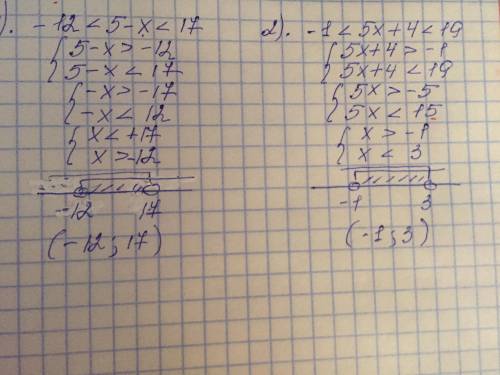 ). -12 < 5-x < 17
{ 5-x > -12
5-x < 17
{ -x > -17
-x < 12
{ x < +17
x > -12
-12 17
(-12; 17)
2). -1 < 5x+4 < 19
{ 5x+4 > -1
5x+4 < 19
{ 5x > -5
5x < 15
{ x > -1
x < 3
-1 3
(-1; 3)